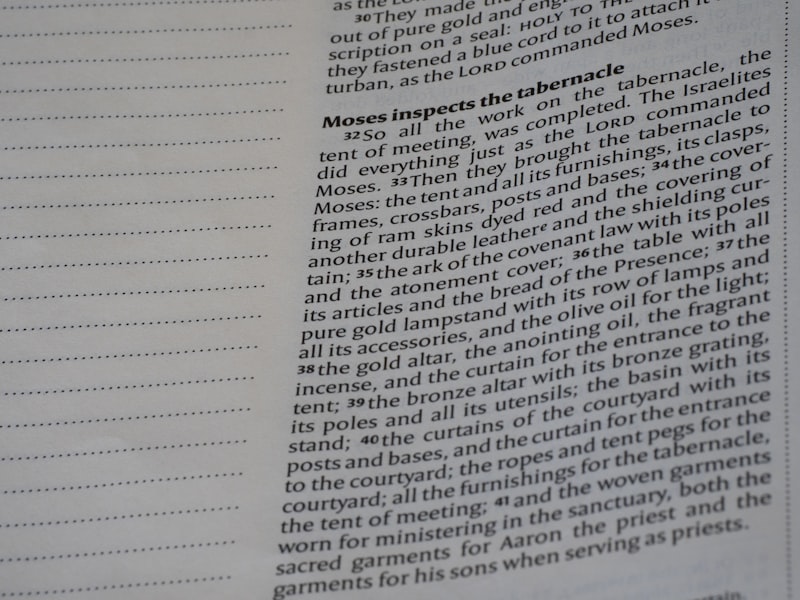 as the
³⁰They made the
out of pure gold and
scription on a seal: HOLY TO THE
they fastened a blue cord to it to attach it
turban, as the LORD commanded Moses.
Moses inspects the tabernacle
³²So all the work on the tabernacle, the
tent of meeting, was completed. The Israelites
did everything just as the LORD commanded
Moses. ³³Then they brought the tabernacle to
Moses: the tent and all its furnishings, its clasps,
frames, crossbars, posts and bases; ³⁴the cover-
ing of ram skins dyed red and the covering of
another durable leatherᵉ and the shielding cur-
tain; ³⁵the ark of the covenant law with its poles
and the atonement cover; ³⁶the table with all
its articles and the bread of the Presence; ³⁷the
pure gold lampstand with its row of lamps and
all its accessories, and the olive oil for the light;
³⁸the gold altar, the anointing oil, the fragrant
incense, and the curtain for the entrance to the
tent; ³⁹the bronze altar with its bronze grating,
its poles and all its utensils; the basin with its
stand; ⁴⁰the curtains of the courtyard with its
posts and bases, and the curtain for the entrance
to the courtyard; the ropes and tent pegs for the
courtyard; all the furnishings for the tabernacle,
the tent of meeting; ⁴¹and the woven garments
worn for ministering in the sanctuary, both the
sacred garments for Aaron the priest and the
garments for his sons when serving as priests.